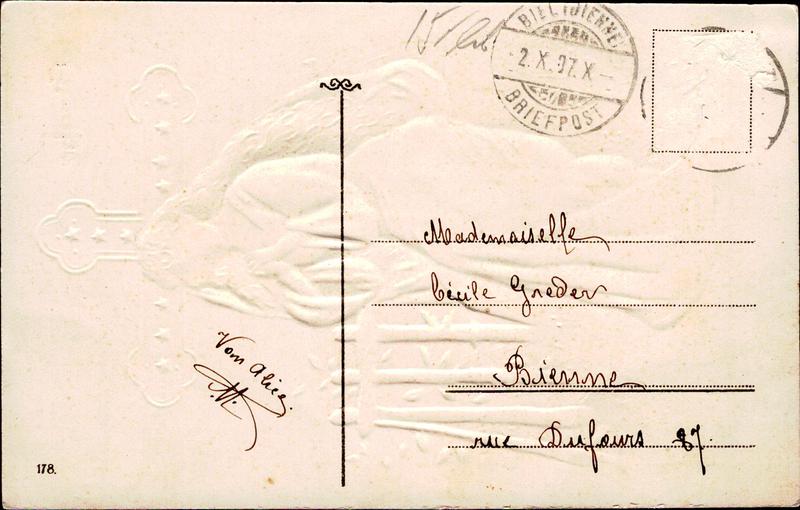 BIEL (BIENNE)
2. X. 07. X
BRIEFPOST
Mademoiselle
Cécile Greder
Bienne
rue Dufours 87
Von Alice.
178.